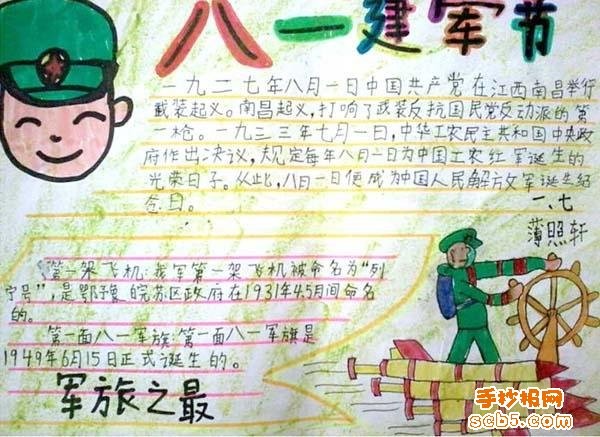 八一建军节
一九二七年八月一日中国共产党在江西南昌举行
武装起义。南昌起义,打响了武装反抗国民党反动派的第
一枪。一九三三年七月一日,中华工农民主共和国中央政
府作出决议,规定每年八月一日为中国工农红军诞生的
光荣日子。从此,八月一日便成为中国人民解放军诞生纪
念日。
一、七
薄照轩
第一架飞机:我军第一架飞机被命名为“列
宁号”,是鄂豫皖苏区政府在1931年4.5月间命名
的。
第一面八一军旗:第一面八一军旗是
1949年6月15日正式诞生的。
军旅之最
手抄报网
scb5.com